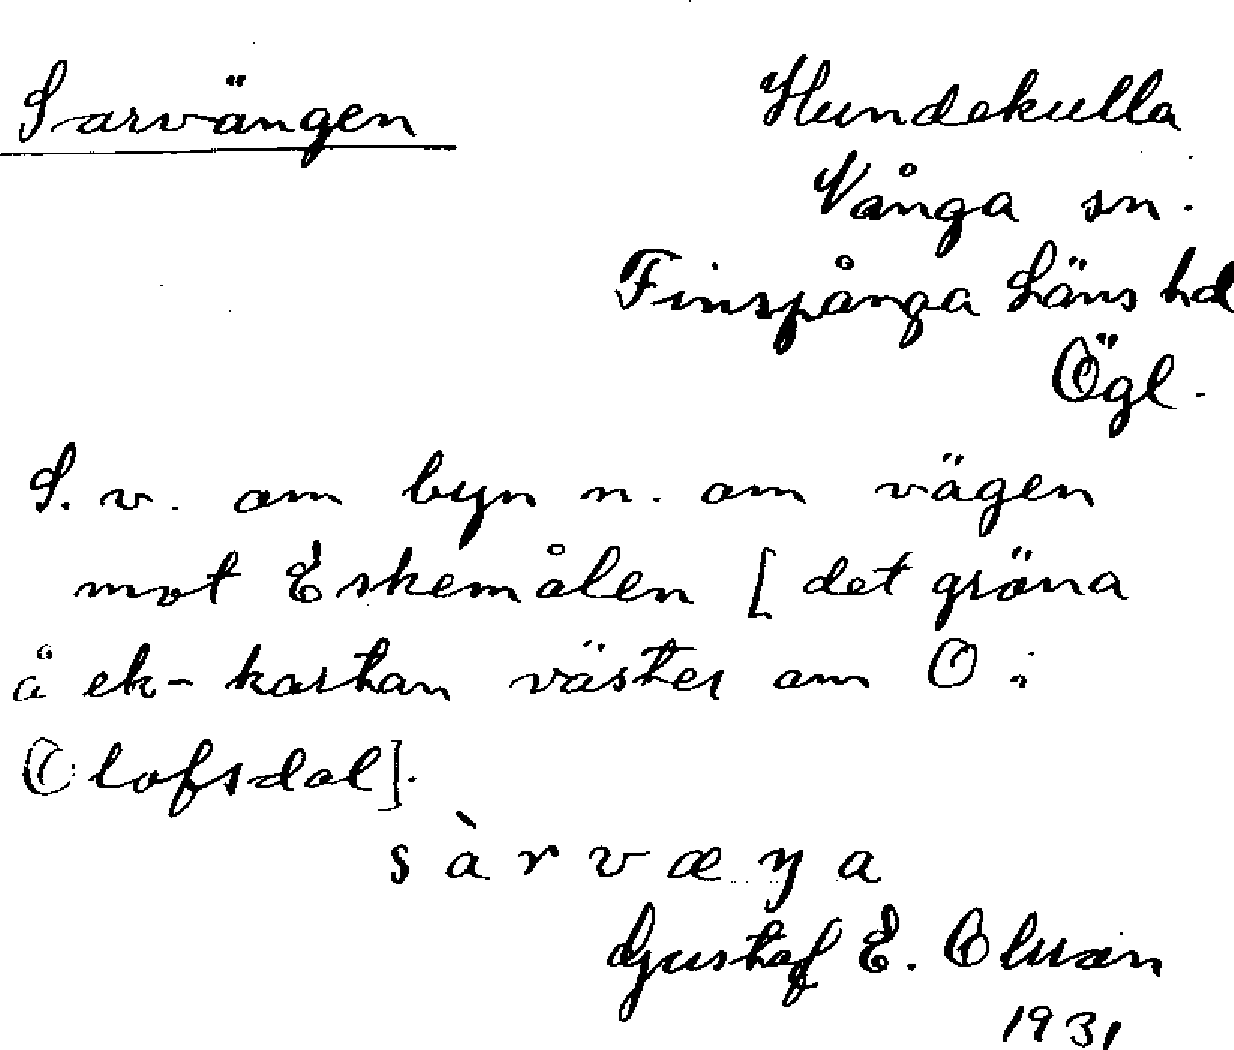 Sarvängen
Hundekulla
Vånga sn.
Finspånga Läns hd
Ögl.
S. v. om byn n. om vägen
mot Eskemålen [det gröna
å ek-kartan väster om O i
Olofsdal].
sàrvæŋa
Gustaf E.
1931